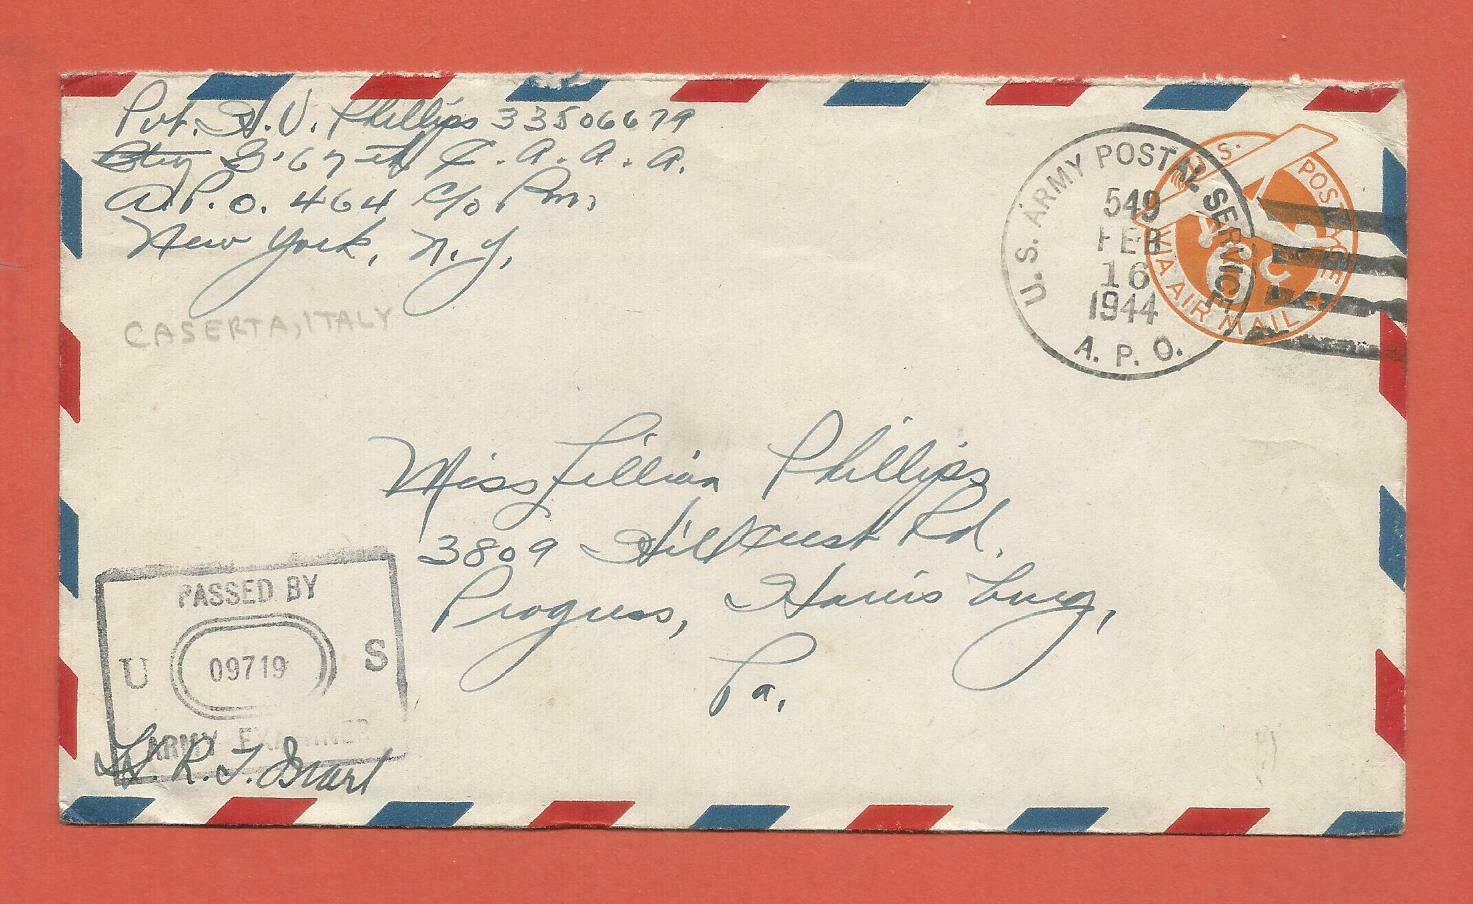 Pvt. H. V. Phillips 33506679
Btry G. 67th C.A.A.A.
A.P.O. 464 c/o Pm,
New York, N.Y,
CASERTA, ITALY
U.S. ARMY POSTAL SERVICE
549
FEB
16
1944
A. P. O.
U.S. POSTAGE
6c
VIA AIR MAIL
Miss Lillian Phillips
3809 Hillcrest Rd.
Progress, Harrisburg,
Pa.
PASSED BY
U 09719 S
ARMY EXAMINER
R. T.